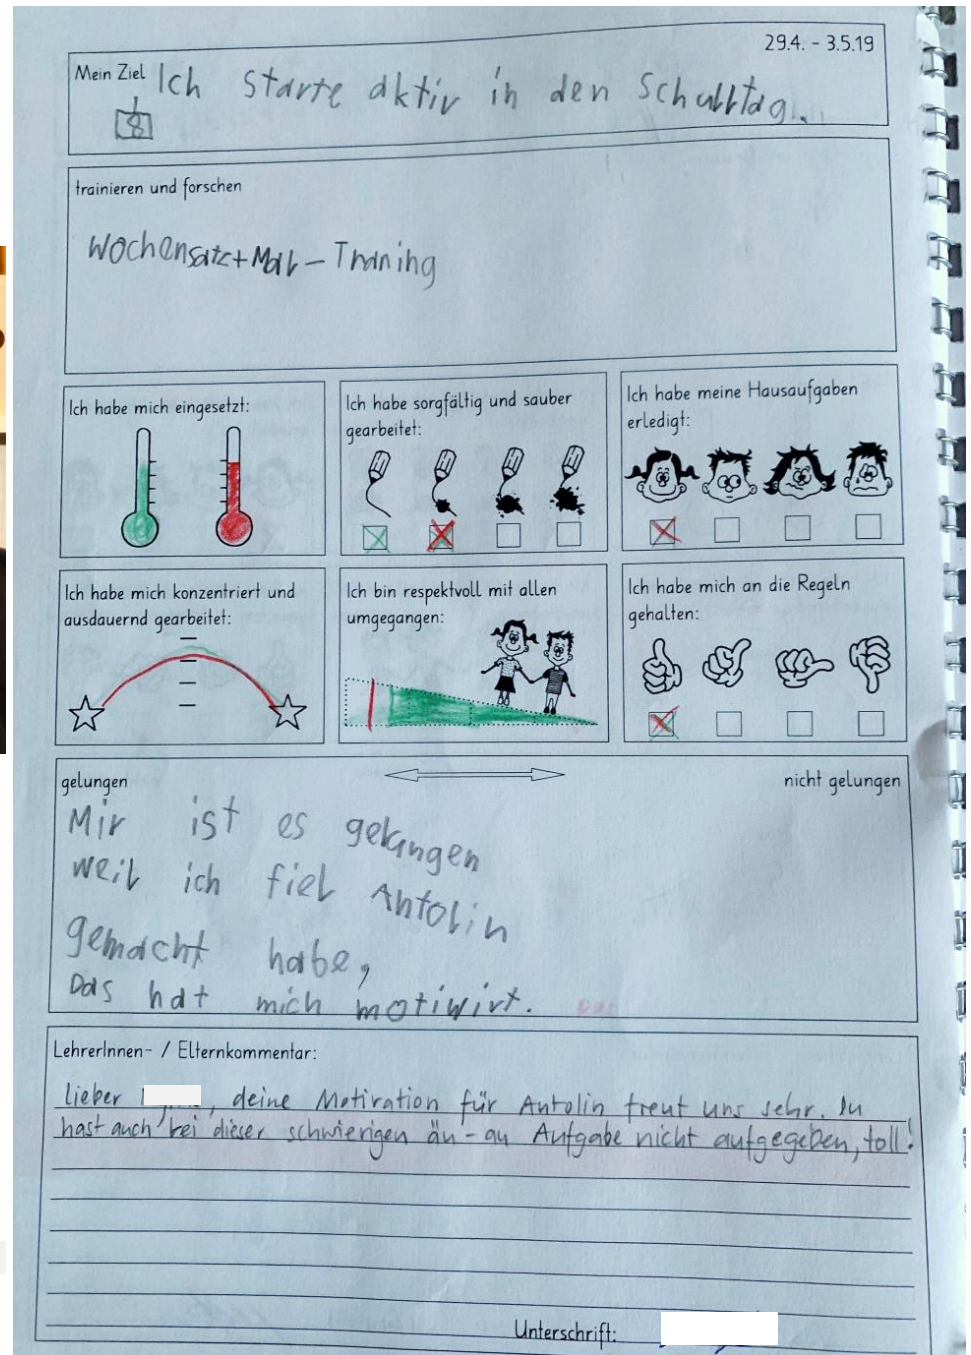 29.4. - 3.5.19
Mein Ziel Ich starte aktiv in den Schulltag.
trainieren und forschen
Wochensatz+Mat-Traning
Ich habe mich eingesetzt:
Ich habe sorgfältig und sauber
gearbeitet:
Ich habe meine Hausaufgaben
erledigt:
Ich habe mich konzentriert und
ausdauernd gearbeitet:
Ich bin respektvoll mit allen
umgegangen:
Ich habe mich an die Regeln
gehalten:
gelungen
nicht gelungen
Mir ist es gelungen
weil ich fiel Antolin
gemacht habe,
Das hat mich motiwirt.
LehrerInnen- / Elternkommentar:
lieber , deine Motivation für Antolin freut uns sehr. Du
hast auch bei dieser schwierigen äu-au Aufgabe nicht aufgegeben, toll!
Unterschrift: